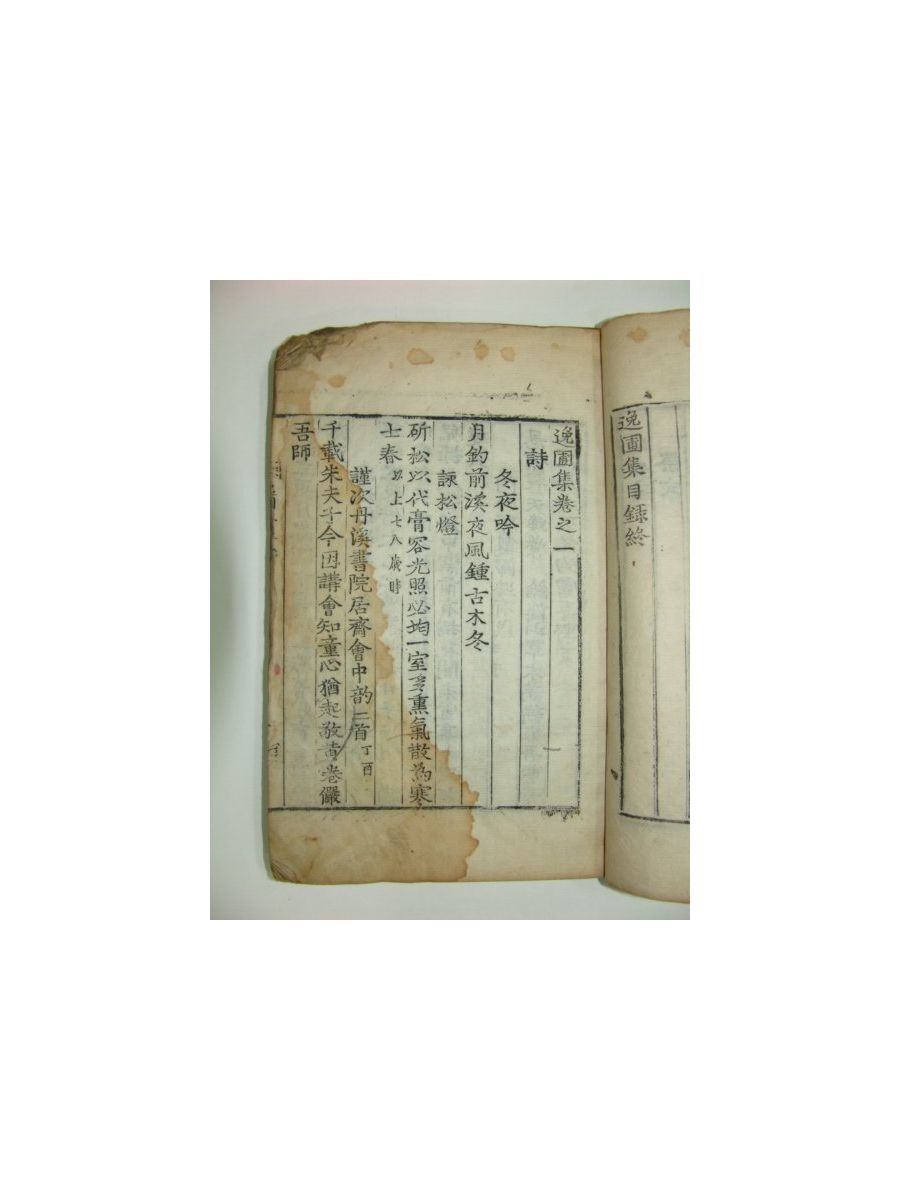 逸圃集目録終
逸圃集卷之一
詩
冬夜吟
月釣前溪夜風鍾古木冬
詠松燈
斫松以代膏容光照必均一室多熏氣散為寒
士春以上七八歲時
謹次丹溪書院居齊會中韵二首丁酉
千載朱夫子今因講會知童心猶起敬黄卷儼
吾師